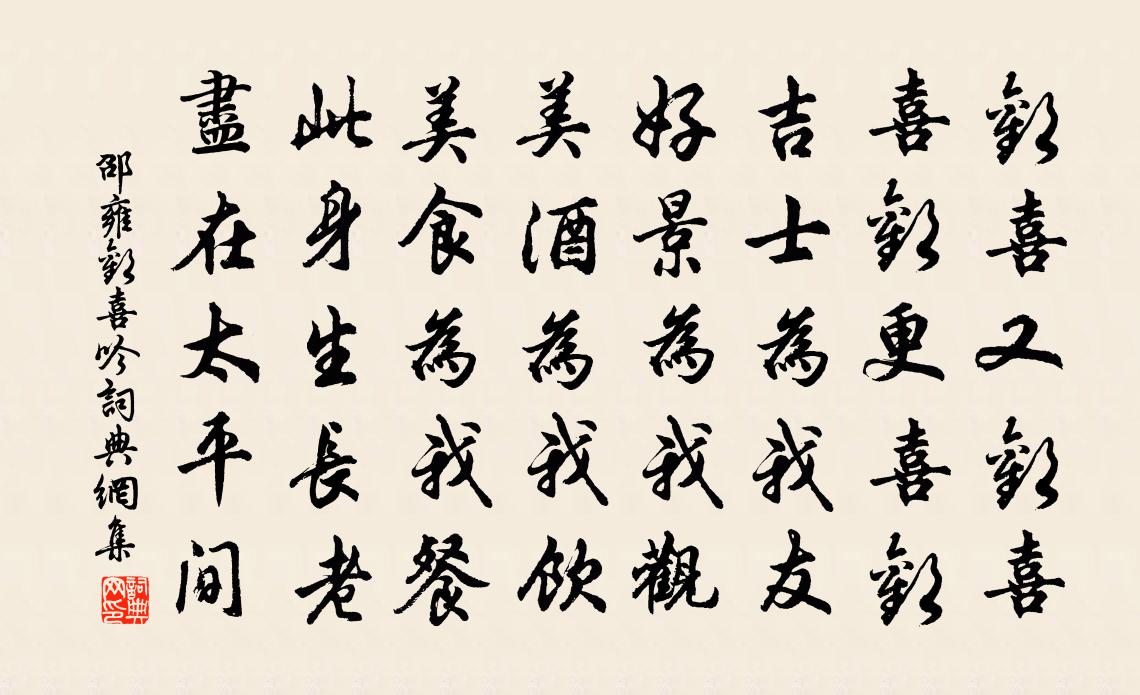 歡喜又歡喜
喜歡更喜歡
吉士為我友
好景為我觀
美酒為我飲
美食為我餐
此身生長老
盡在太平間
邵雍歡喜吟詞典網集
詞典网印